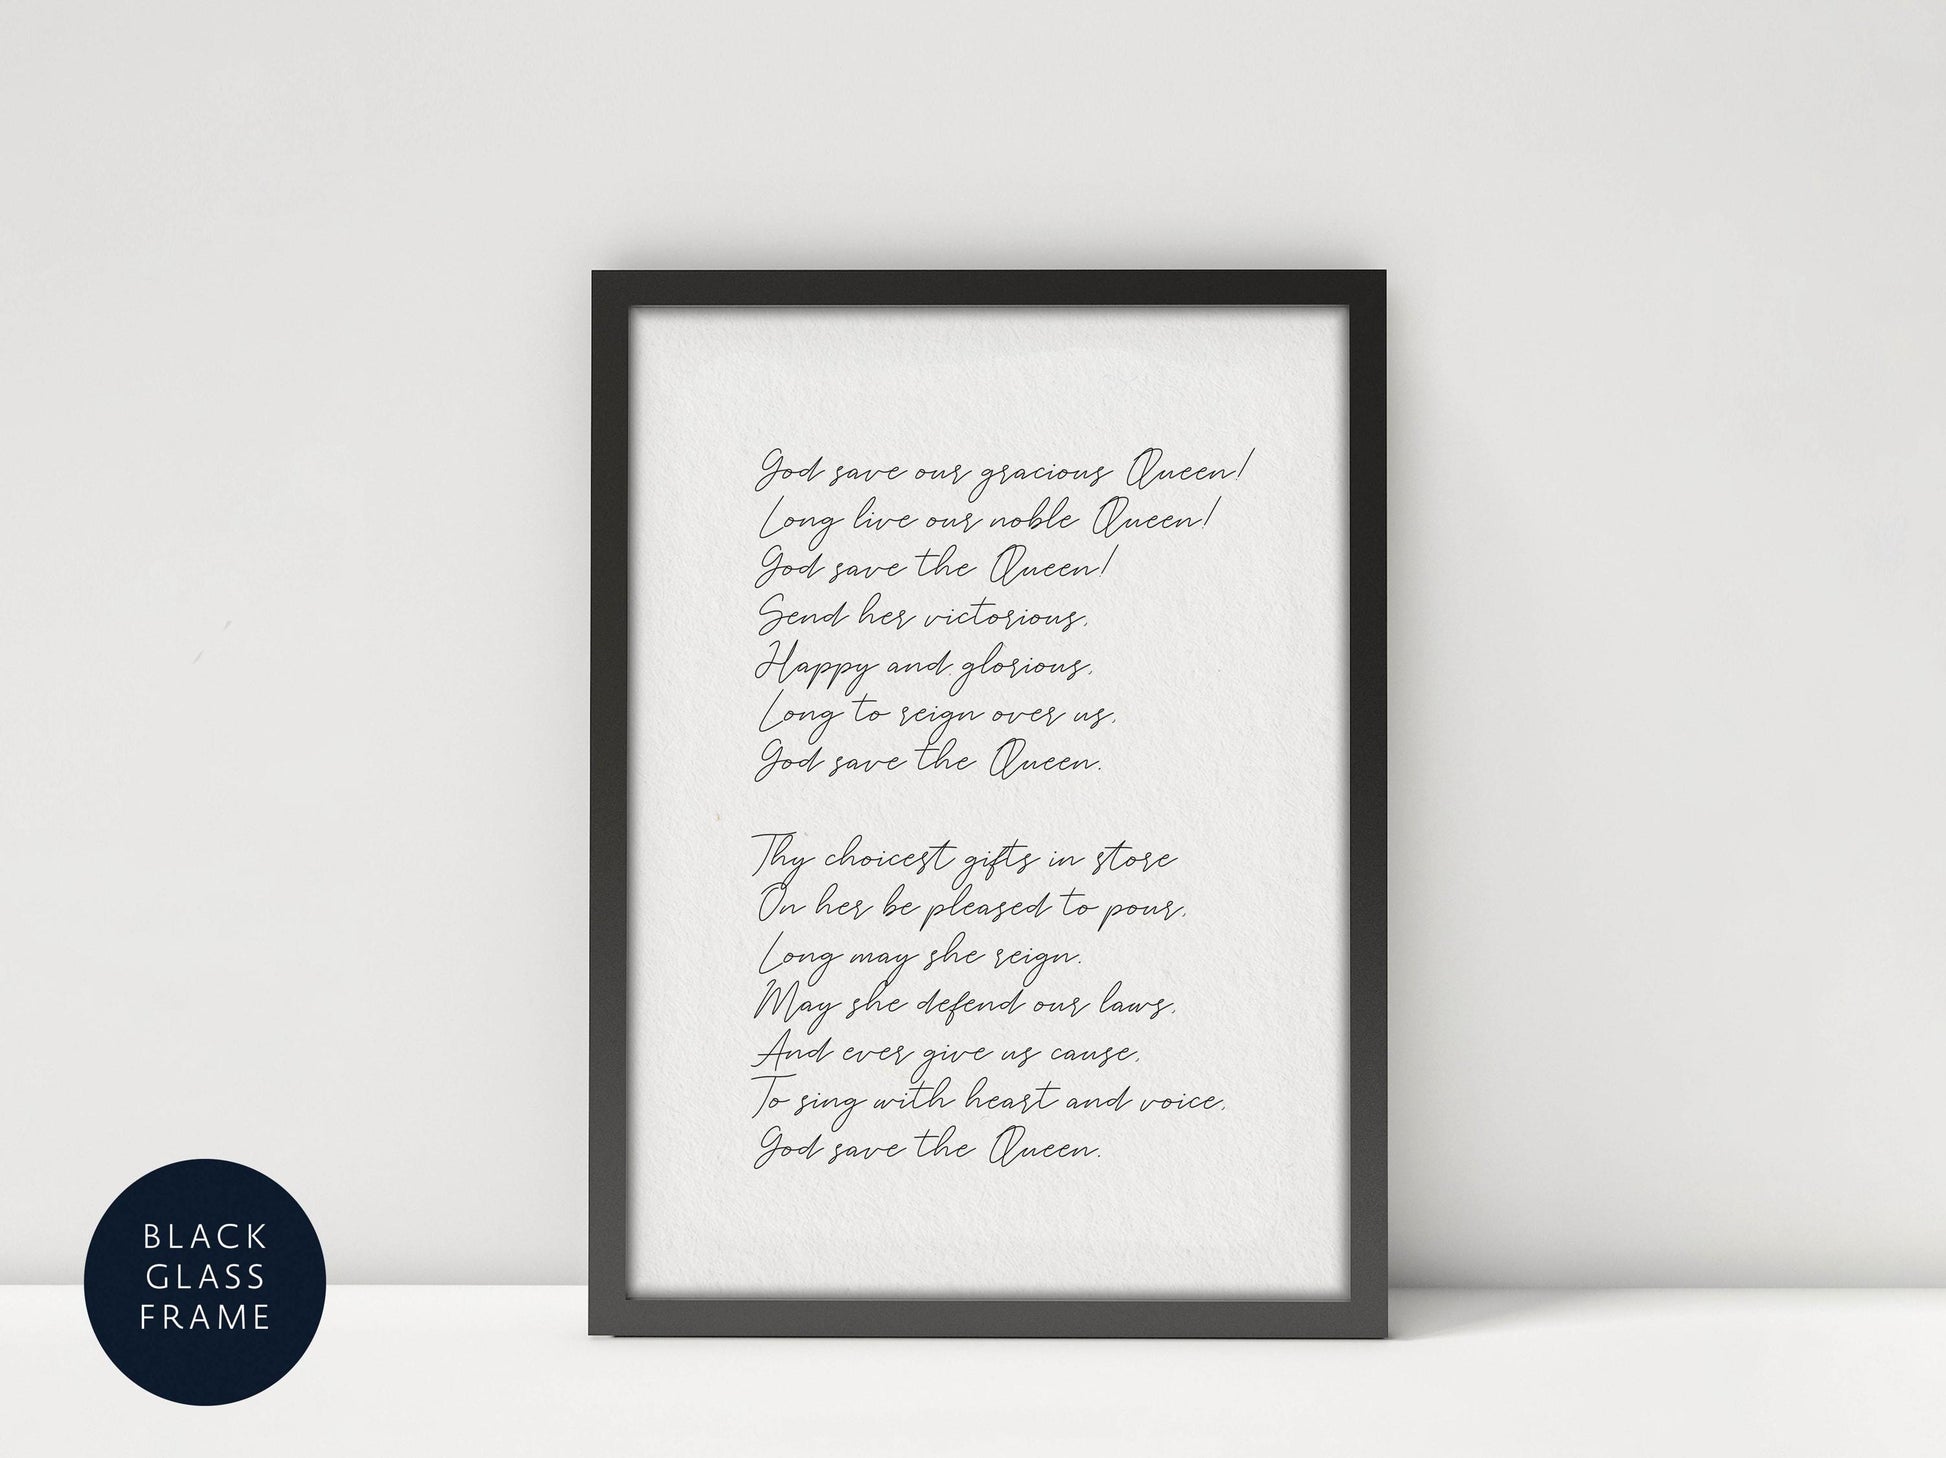 God save our gracious Queen!
Long live our noble Queen!
God save the Queen!
Send her victorious,
Happy and glorious,
Long to reign over us,
God save the Queen.
Thy choicest gifts in store
On her be pleased to pour,
Long may she reign.
May she defend our laws,
And ever give us cause,
To sing with heart and voice,
God save the Queen.
BLACK
GLASS
FRAME